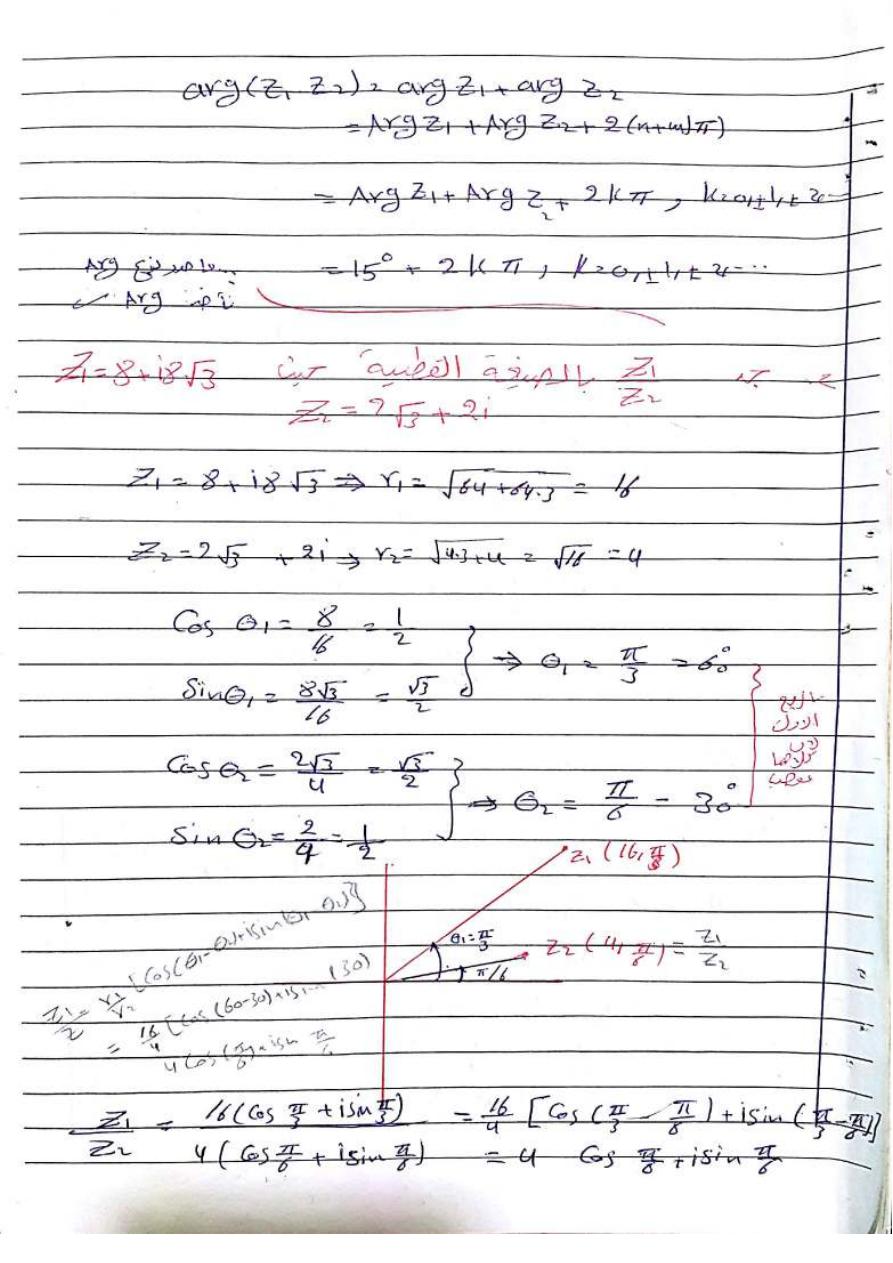 arg(Z₁ Z₂) = arg Z₁ + arg Z₂
= Arg Z₁ + Arg Z₂ + 2(n+m)π)
= Arg Z₁ + Arg Z₂ + 2kπ , k=0,±1,±2...
= 15° + 2kπ , k=0,±1,±2...
Arg
Arg
Z₁/Z₂ بالصيغة القطبية حيث Z₁=8+i8√3
Z₂ = 2√3 + 2i
Z₁ = 8+i8√3 ⇒ r₁ = √(64+64.3) = 16
Z₂ = 2√3 + 2i → r₂ = √(4.3+4) = √16 = 4
Cos θ₁ = 8/16 = 1/2
Sin θ₁ = 8√3/16 = √3/2 } ⇒ θ₁ = π/3 = 60°
Cos θ₂ = 2√3/4 = √3/2
Sin θ₂ = 2/4 = 1/2 } ⇒ θ₂ = π/6 = 30°
بالربع
الاول
كلاهما
موجب
Z₁ (16, π/3)
θ₁ = π/3
Z₂ (4, π/6) = Z₁/Z₂
π/6
Z₁/Z = r₁/r₂ [Cos(θ₁-θ₂)+isin(θ₁-θ₂)]
= 16/4 [Cos(60-30)+isin (30)
4 Cos(π/6)+isin π/6
Z₁/Z₂ = 16(Cos π/3 + isin π/3) / 4(Cos π/6 + isin π/6) = 16/4 [Cos(π/3 - π/6) + isin(π/3 - π/6)]
= 4 Cos π/6 + isin π/6